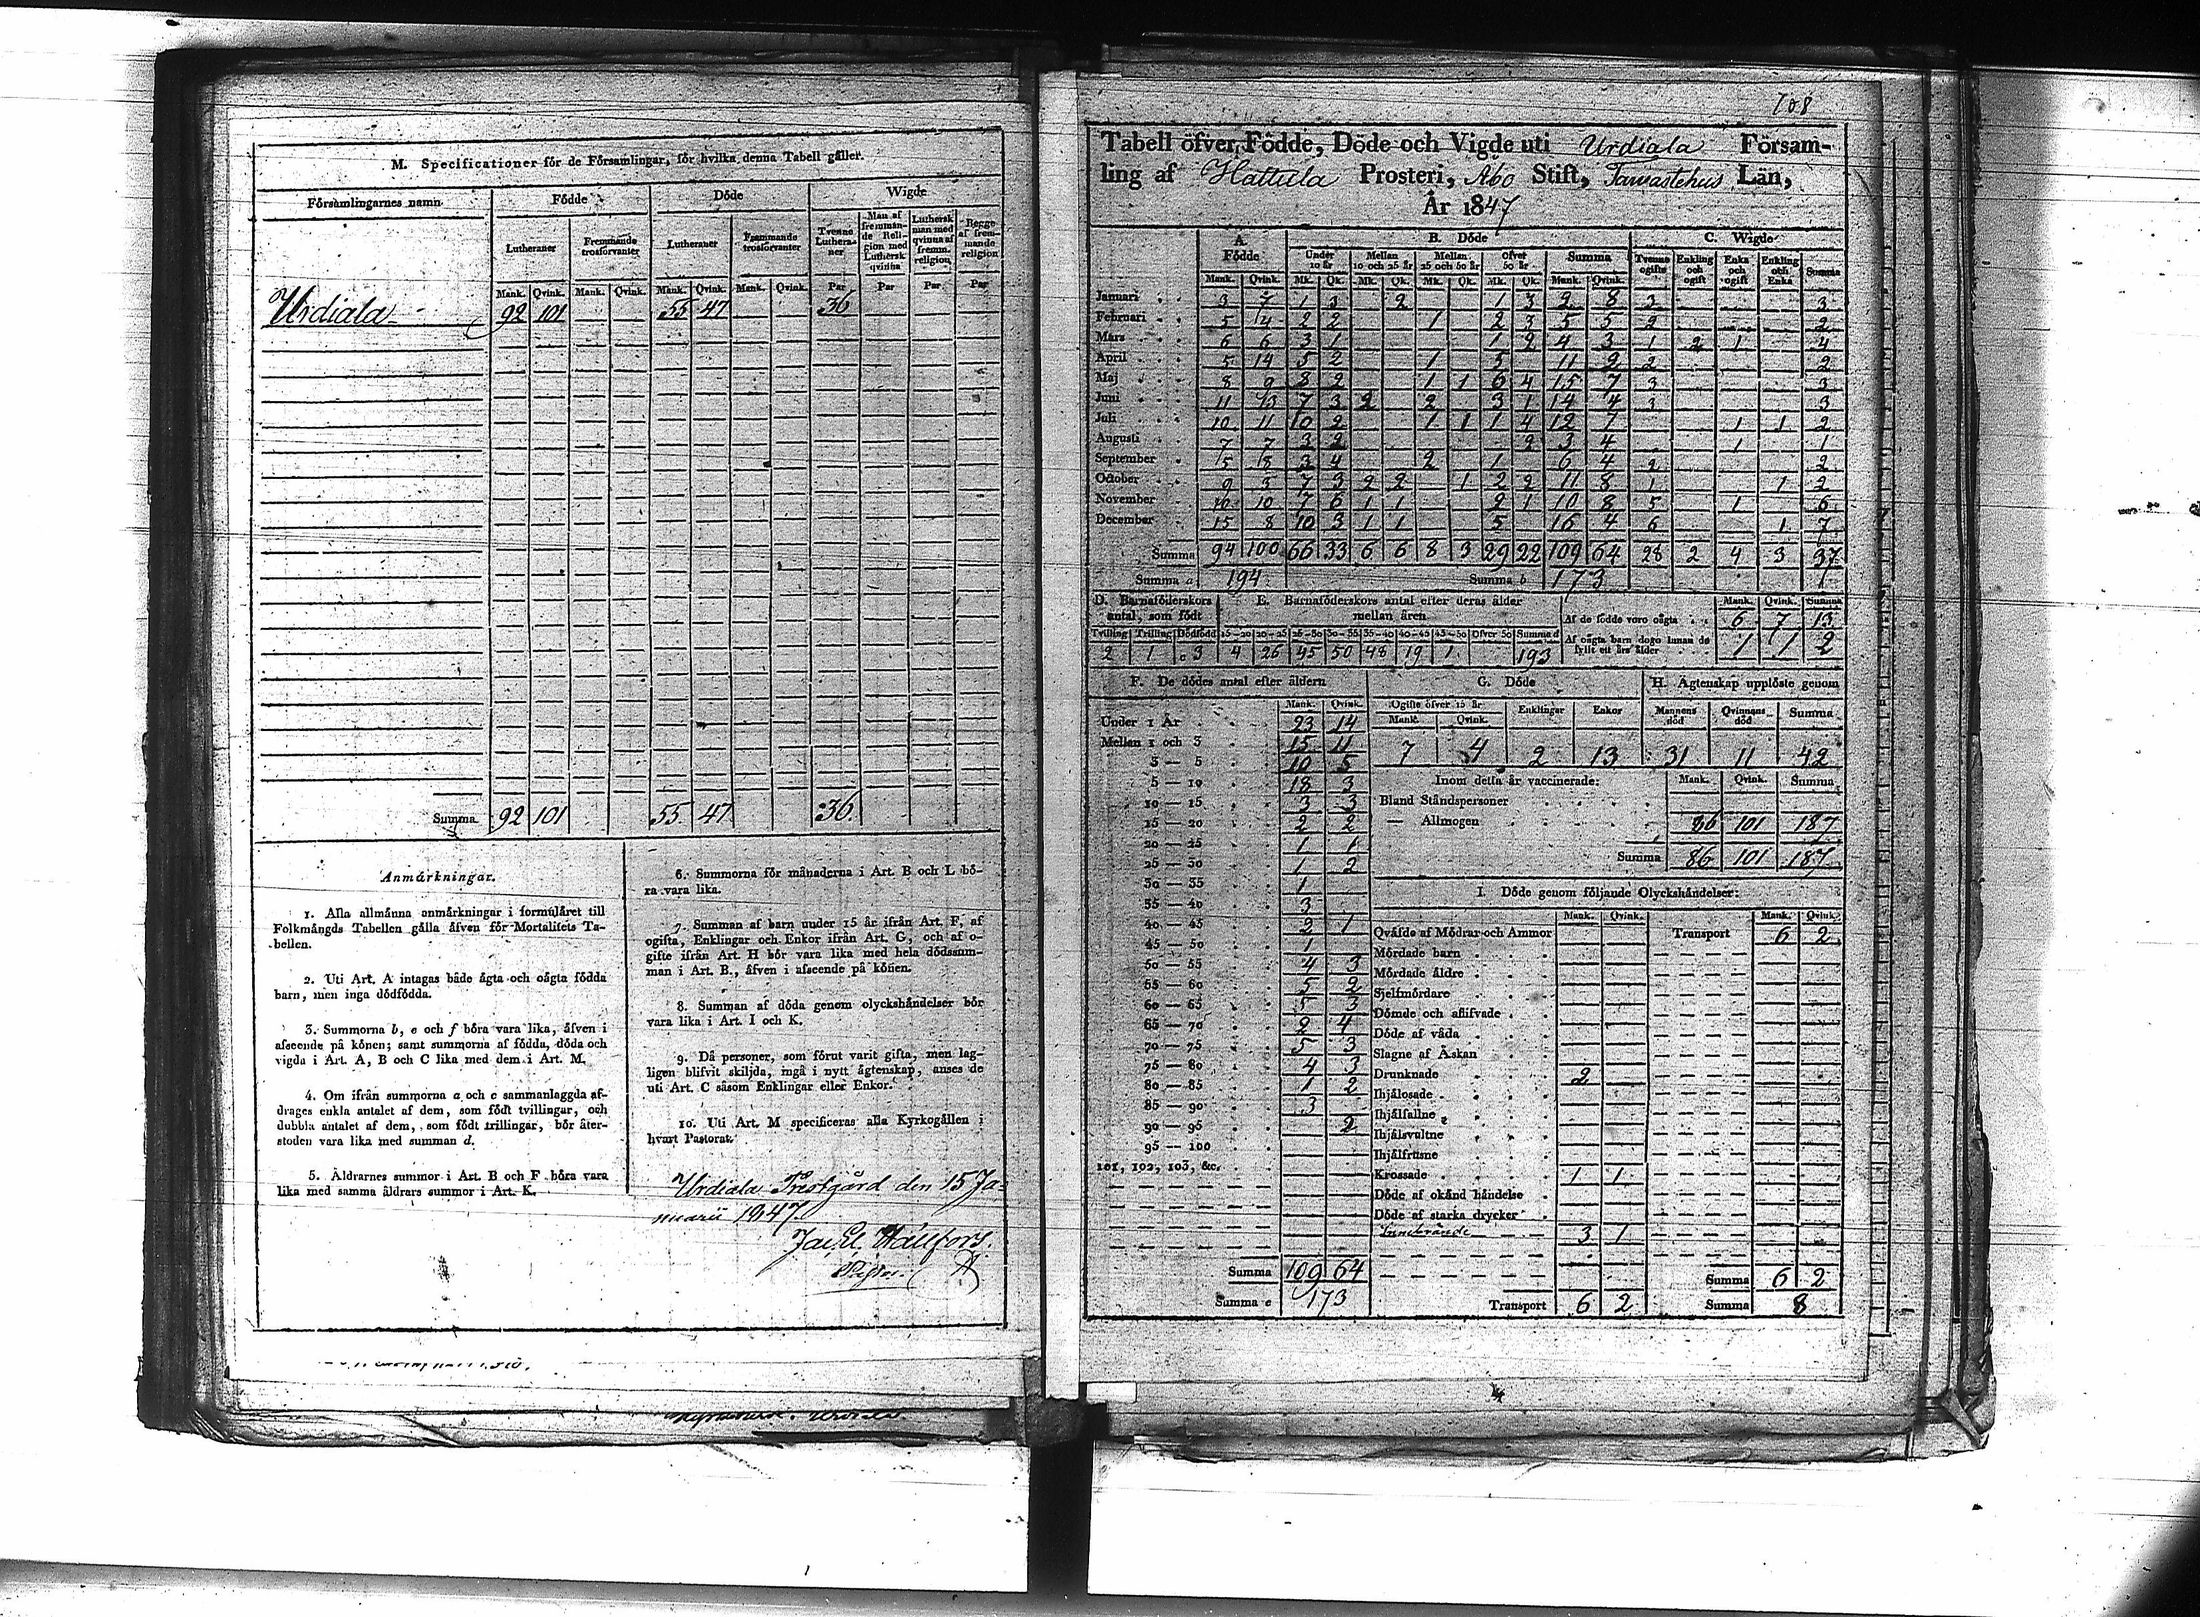 M. Specificationer för de Församlingar, för hvilka denna Tabell gäller.
Församlingarnes namn. Födde Döde Wigde
Lutheraner Fremmande trosförvanter Lutheraner Frammande trosförvanter Tvenne Lutheraner Man af fremmande Religion med Luthersk qvinna Luthersk man med qvinna af fremm. religion Begge af fremmande religion
Mank. Qvink. Mank. Qvink. Mank. Qvink. Mank. Qvink. Par Par Par Par
Urdiala 92 101 55 47 36
Summa 92 101 55 47 36
Anmärkningar.
1. Alla allmänna anmärkningar i formuläret till
Folkmängds Tabellen gälla äfven för Mortalitets Ta-
bellen.
2. Uti Art. A intagas både ägta och oägta födda
barn, men inga dödfödda.
3. Summorna b, e och f böra vara lika, äfven i
afseende på könen; samt summorna af födda, döda och
vigda i Art. A, B och C lika med dem i Art. M.
4. Om ifrån summorna a och c sammanlaggda af-
drages enkla antalet af dem, som födt tvillingar, och
dubbla antalet af dem, som födt trillingar, bör åter-
stoden vara lika med summan d.
5. Åldrarnes summor i Art. B och F böra vara
lika med samma åldrars summor i Art. K.
6. Summorna för månaderna i Art. B och L bö-
ra vara lika.
7. Summan af barn under 15 år ifrån Art. F, af
ogifta, Enklingar och Enkor ifrån Art. G, och af o-
gifte ifrån Art. H bör vara lika med hela dödssum-
man i Art. B., äfven i afseende på könen.
8. Summan af döda genom olyckshändelser bör
vara lika i Art. I och K.
9. Då personer, som förut varit gifta, men lag-
ligen blifvit skiljda, ingå i nytt ägtenskap, anses de
uti Art. C såsom Enklingar eller Enkor.
10. Uti Art. M specificeras alla Kyrkogällen i
hvart Pastorat.
Urdiala Prestgård den 15 Ja-
nuarii 1847.
108
Tabell öfver Födde, Döde och Vigde uti Urdiala Försam-
ling af Hattula Prosteri, Åbo Stift, Tawastehus Län,
År 1847
A. Födde B. Döde C. Wigde
Under 10 år Mellan 10 och 25 år Mellan 25 och 50 år Öfver 50 år Summa Tvenne ogifte Enkling och ogift Enka och ogift Enkling och Enka Summa
Mank. Qvink. Mk. Qk. Mk. Qk. Mk. Qk. Mk. Qk. Mank. Qvink.
Januari 3 7 1 3 2 1 3 2 8 3 3
Februari 5 4 2 2 1 2 3 5 5 2 2
Mars 6 6 3 1 1 2 4 3 1 2 1 4
April 5 14 5 2 1 5 11 2 2 2
Maj 8 9 8 2 1 1 6 4 15 7 3 3
Juni 11 13 7 3 2 2 3 1 14 4 3 3
Juli 10 11 10 2 1 1 1 4 12 7 1 1 2
Augusti 7 7 3 2 2 3 4 1 1
September 5 8 3 4 2 1 6 4 2 2
October 9 3 7 3 2 2 1 2 2 11 8 1 1 2
November 10 10 7 6 1 1 2 1 10 8 5 1 6
December 15 8 10 3 1 1 5 16 4 6 1 7
Summa 94 100 66 33 6 6 8 3 29 22 109 64 28 2 4 3 37
Summa a 194 Summa b 173
D. Barnaföderskors antal, som födt E. Barnaföderskors antal efter deras ålder mellan åren Mank. Qvink. Summa
Tvilling Trilling Dödfödd 15-20 20-25 25-30 30-35 35-40 40-45 45-50 Öfver 50 Summa d
2 1 c 3 4 26 45 50 48 19 1 193
Af de födde voro oägta 6 7 13
Af oägta barn dogo innan de fyllt ett års ålder 1 1 2
F. De dödes antal efter åldern G. Döde H. Ägtenskap upplöste genom
Mank. Qvink. Ogifte öfver 15 år Mank. Qvink. Enklingar Enkor Mannens död Qvinnans död Summa
7 4 2 13 31 11 42
Under 1 År 23 14
Mellan 1 och 3 15 11
3 — 5 10 5
5 — 10 18 3
10 — 15 3 3
15 — 20 2 2
20 — 25 1 1
25 — 30 1 2
30 — 35 1
35 — 40 3
40 — 45 2 1
45 — 50 1
50 — 55 4 3
55 — 60 5 2
60 — 65 5 3
65 — 70 2 4
70 — 75 5 3
75 — 80 4 3
80 — 85 1 2
85 — 90 3
90 — 95 2
95 — 100
101, 102, 103, &c.
Summa 109 64
Summa e 173
Inom detta år vaccinerade: Mank. Qvink. Summa
Bland Ståndspersoner
— Allmogen 86 101 187
Summa 86 101 187
I. Döde genom följande Olyckshändelser:
Mank. Qvink. Mank. Qvink.
Qväfde af Mödrar och Ammor Transport 6 2
Mördade barn
Mördade äldre
Sjelfmördare
Dömde och aflifvade
Döde af våda
Slagne af Åskan
Drunknade 2
Ihjälosade
Ihjälfallne
Ihjälsvultne
Ihjälfrusne
Krossade 1 1
Döde af okänd händelse
Döde af starka drycker
Innebrände 3 1
Summa 6 2
Transport 6 2 Summa 8